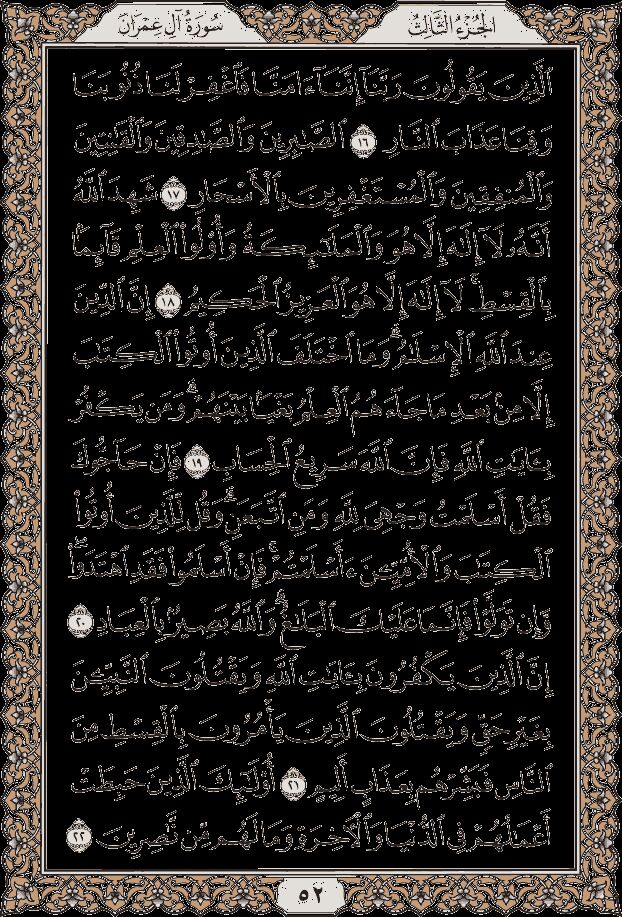 سُورَةُ آلِ عِمْرَانَ
الجُزْءُ الثَّالِثُ
ٱلَّذِينَ يَقُولُونَ رَبَّنَآ إِنَّنَآ ءَامَنَّا فَٱغْفِرْ لَنَا ذُنُوبَنَا
وَقِنَا عَذَابَ ٱلنَّارِ ١٦ ٱلصَّٰبِرِينَ وَٱلصَّٰدِقِينَ وَٱلْقَٰنِتِينَ
وَٱلْمُنفِقِينَ وَٱلْمُسْتَغْفِرِينَ بِٱلْأَسْحَارِ ١٧ شَهِدَ ٱللَّهُ
أَنَّهُۥ لَآ إِلَٰهَ إِلَّا هُوَ وَٱلْمَلَٰٓئِكَةُ وَأُو۟لُوا۟ ٱلْعِلْمِ قَآئِمًۢا
بِٱلْقِسْطِ ۚ لَآ إِلَٰهَ إِلَّا هُوَ ٱلْعَزِيزُ ٱلْحَكِيمُ ١٨ إِنَّ ٱلدِّينَ
عِندَ ٱللَّهِ ٱلْإِسْلَٰمُ ۗ وَمَا ٱخْتَلَفَ ٱلَّذِينَ أُوتُوا۟ ٱلْكِتَٰبَ
إِلَّا مِنۢ بَعْدِ مَا جَآءَهُمُ ٱلْعِلْمُ بَغْيًۢا بَيْنَهُمْ ۗ وَمَن يَكْفُرْ
بِـَٔايَٰتِ ٱللَّهِ فَإِنَّ ٱللَّهَ سَرِيعُ ٱلْحِسَابِ ١٩ فَإِنْ حَآجُّوكَ
فَقُلْ أَسْلَمْتُ وَجْهِىَ لِلَّهِ وَمَنِ ٱتَّبَعَنِ ۗ وَقُل لِّلَّذِينَ أُوتُوا۟
ٱلْكِتَٰبَ وَٱلْأُمِّيِّـۧنَ ءَأَسْلَمْتُمْ ۚ فَإِنْ أَسْلَمُوا۟ فَقَدِ ٱهْتَدَوا۟ ۖ
وَّإِن تَوَلَّوْا۟ فَإِنَّمَا عَلَيْكَ ٱلْبَلَٰغُ ۗ وَٱللَّهُ بَصِيرٌۢ بِٱلْعِبَادِ ٢٠
إِنَّ ٱلَّذِينَ يَكْفُرُونَ بِـَٔايَٰتِ ٱللَّهِ وَيَقْتُلُونَ ٱلنَّبِيِّـۧنَ
بِغَيْرِ حَقٍّ وَيَقْتُلُونَ ٱلَّذِينَ يَأْمُرُونَ بِٱلْقِسْطِ مِنَ
ٱلنَّاسِ فَبَشِّرْهُم بِعَذَابٍ أَلِيمٍ ٢١ أُو۟لَٰٓئِكَ ٱلَّذِينَ حَبِطَتْ
أَعْمَٰلُهُمْ فِى ٱلدُّنْيَا وَٱلْءَاخِرَةِ وَمَا لَهُم مِّن نَّٰصِرِينَ ٢٢
٥٢